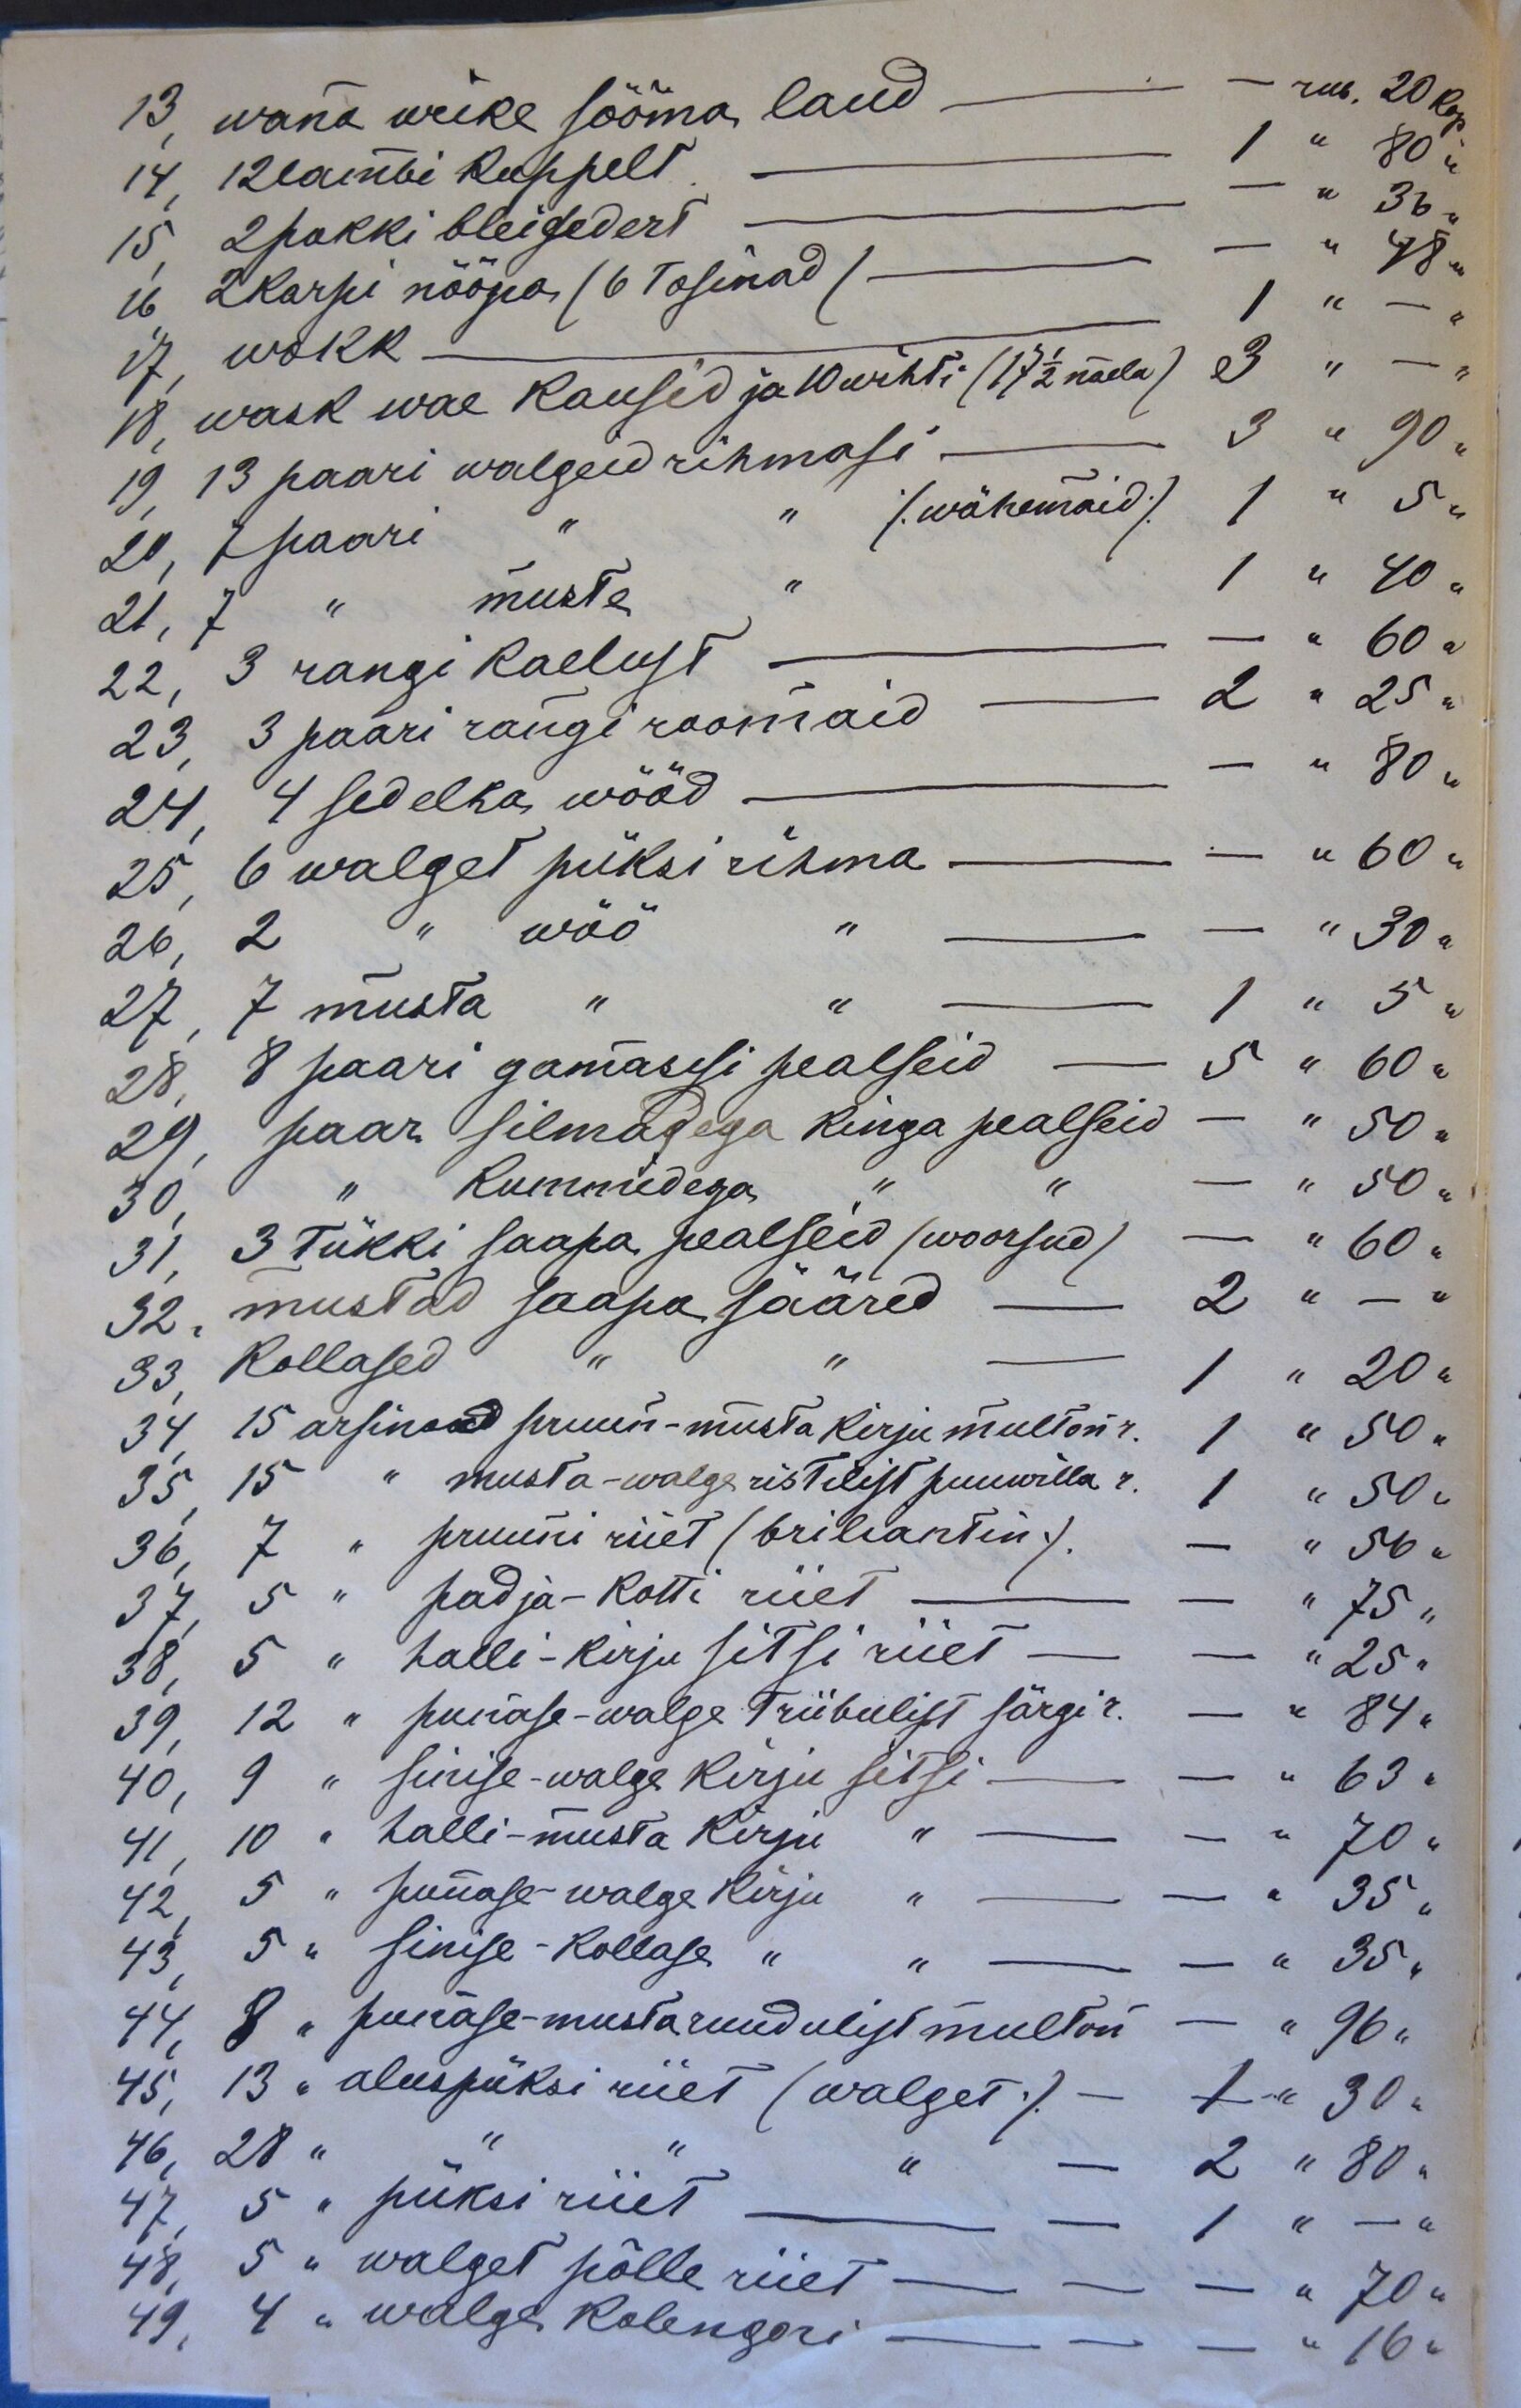 13, wana wäike sööma laud — — rub. 20 kop
14, 12 lambi kuppelt. — 1 " 80 "
15, 2 pakki bleifedert — — " 36 "
16, 2 karpi nööpa (6 tosinad) — — " 48 "
17, wokk — 1 " — "
18, wask wae kausid ja 10 wihti (17 1/2 naela) 3 " — "
19, 13 paari walgeid rihmasi — 3 " 90 "
20, 7 paari " " /.wähemaid./ 1 " 5 "
21, 7 " musta " 1 " 40 "
22, 3 rangi kaelust — — " 60 "
23, 3 paari rangi roomaid — 2 " 25 "
24, 4 sedelka wööd — — " 80 "
25, 6 walget püksi rihma — — " 60 "
26, 2 " wöö " — — " 30 "
27, 7 musta " " — 1 " 5 "
28, 8 paari gamassi pealseid — 5 " 60 "
29, paar silmadega kinga pealseid — " 50 "
30, " kummidega " " — " 50 "
31, 3 tükki saapa pealseid (woorsud) — " 60 "
32. mustad saapa sääred — 2 " — "
33, kollased " " — 1 " 20 "
34, 15 arsinad pruun-musta kirju multon r. 1 " 50 "
35, 15 " musta-walge ristilist puuwilla r. 1 " 50 "
36, 7 " pruuni riiet (briliantin:). — " 56 "
37, 5 " padja-kotti riiet — — " 75 "
38, 5 " halli-kirju sitsi riiet — — " 25 "
39, 12 " punase-walge triibulist särgi r. — " 84 "
40, 9 " sinise-walge kirju sitsi — — " 63 "
41, 10 " halli-musta kirju " — — " 70 "
42, 5 " punase-walge kirju " — — " 35 "
43, 5 " sinise-kollase " " — — " 35 "
44, 8 " punase-musta ruudulist multon — " 96 "
45, 13 " aluspüksi riiet (walget:). — 1 " 30 "
46, 28 " " " " — 2 " 80 "
47, 5 " püksi riiet — — 1 " — "
48, 5 " walget põlle riiet — — — " 70 "
49, 4 " walge kolengori — — — " 16 "